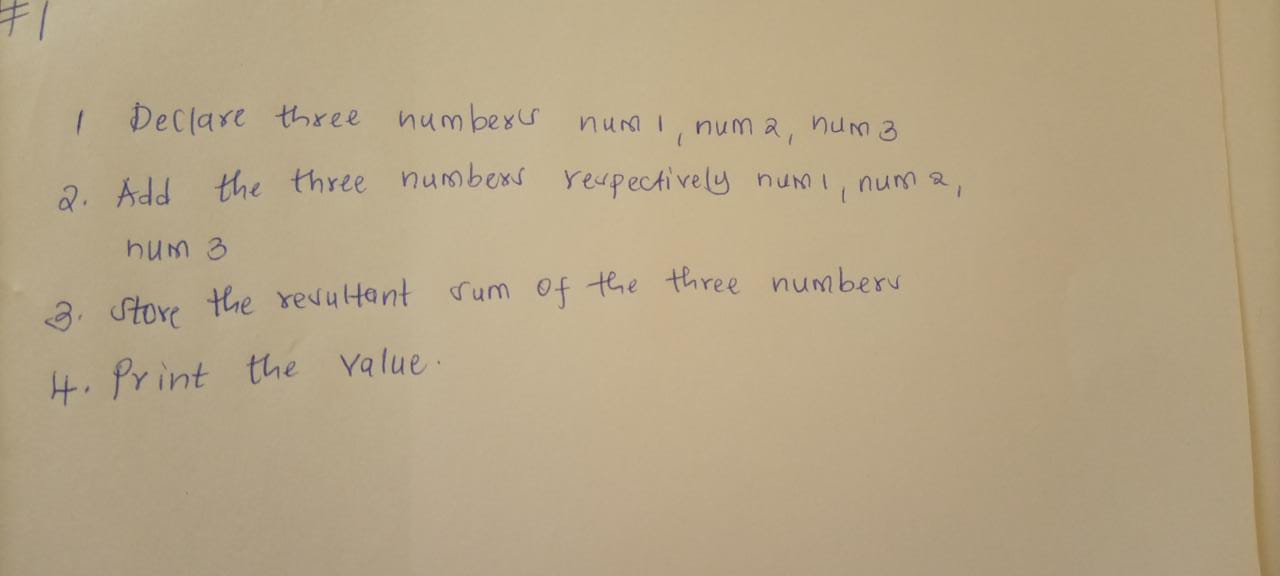 #1
1 Declare three numbers num 1, num 2, num 3
2. Add the three numbers respectively num 1, num 2,
num 3
3. Store the resultant sum of the three numbers
4. Print the value.